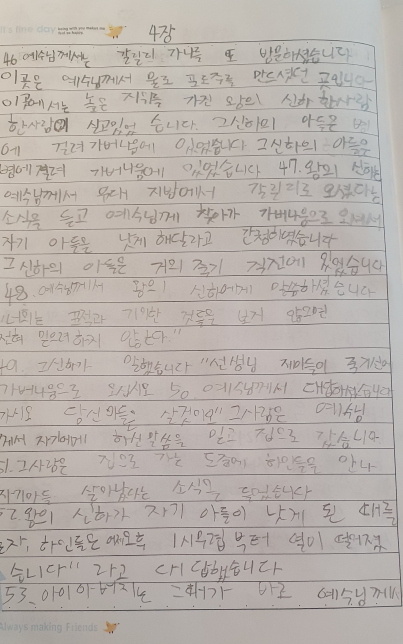 it's fine day
4장
46 예수님께서는 갈릴리 가나를 또 방문하셨습니다
이곳은 예수님께서 물로 포도주를 만드셨던 곳입니다
이곳에서는 높은 지위를 가진 왕의 신하 한사람
한사람이 살고있었습니다 그신하의 아들은 병
에 걸려 가버나움에 있었습니다 그신하의 아들은
병에 걸려 가버나움에 있었습니다 47. 왕의 신하는
예수님께서 유대 지방에서 갈릴리로 오셨다는
소식을 듣고 예수님께 찾아가 가버나움으로 오셔서
자기 아들을 낫게 해달라고 간청하였습니다
그 신하의 아들은 거의 죽기 직전에 있었습니다
48. 예수님께서 왕의 신하에게 말씀하셨습니다
너희는 표적과 기이한 것들을 보지 않으면
전혀 믿으려하지 않는다"
49. 그신하가 말했습니다 "선생님 제아들이 죽기전에
가버나움으로 오십시오 50. 예수님께서 대답하셨습니다
가시오 당신 아들은 살것이오" 그사람은 예수님
께서 자기에게 하신 말씀을 믿고 집으로 갔습니다
51. 그사람은 집으로 가는 도중에 하인들을 만나
자기아들 살아났다는 소식을 들었습니다
52. 왕의 신하가 자기 아들이 낫게 된 때를
묻자, 하인들은 어제오후 1시쯤부터 열이 떨어졌
습니다" 라고 대답했습니다
53. 아이 아버지는 그때가 바로 예수님께서
Always making Friends